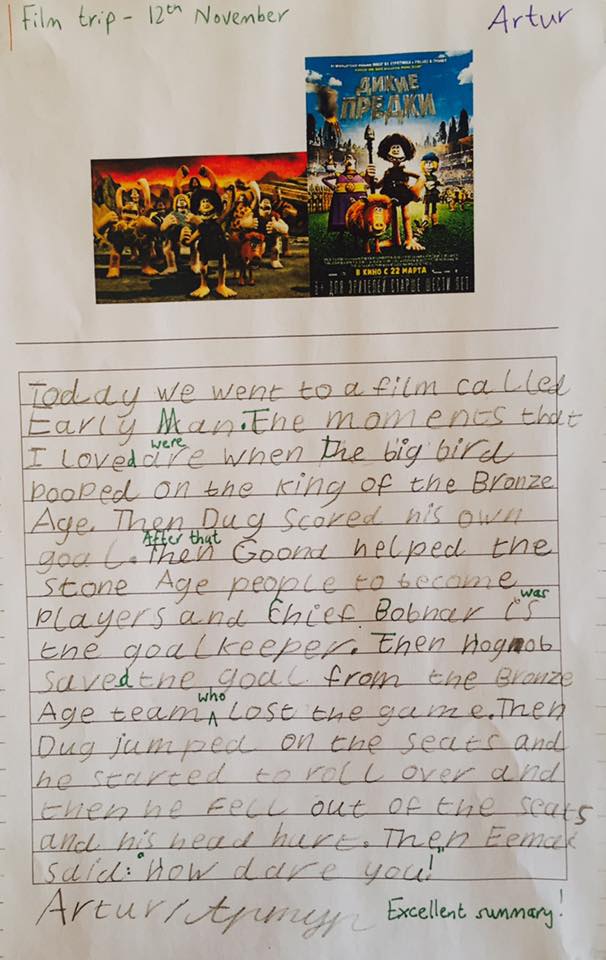 Film trip - 12th November
Artur
ДИКИЕ
ПРЕДКИ
В КИНО С 22 МАРТА
ДЛЯ ЗРИТЕЛЕЙ СТАРШЕ ШЕСТИ ЛЕТ
Today we went to a film called
Early Man. The moments that
were
I loved are when the big bird
pooped on the king of the Bronze
Age. Then Dug scored his own
After that
goal. Then Goond helped the
Stone Age people to become
was
players and Chief Bobnar is
the goalkeeper. Then Hognob
saved the goal from the Bronze
who
Age team lost the game. Then
Dug jumped on the seats and
he started to roll over and
then he fell out of the seats
and his head hurt. Then Eemak
said: "How dare you!"
Artur / Артур
Excellent summary!